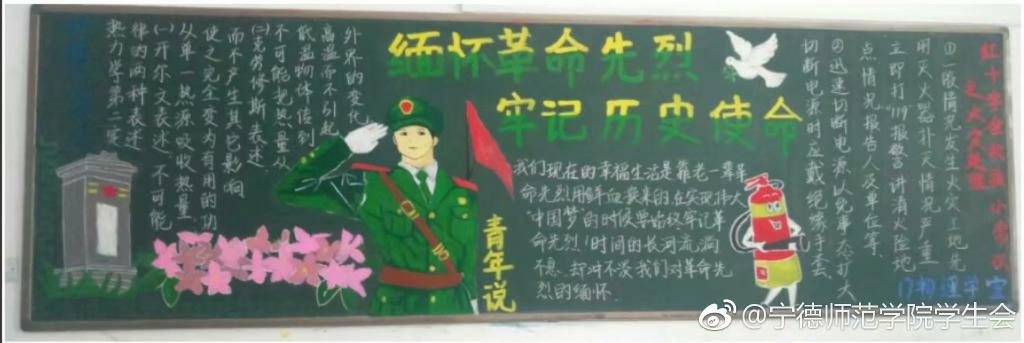 缅怀革命先烈
牢记历史使命
热力学第二定
律的两种表述
(一)开尔文表述 不可能
从单一热源吸收热量
使之完全变为有用的功
而不产生其它影响
(二)克劳修斯表述
不可能把热量从
低温物体传到
高温而不引起
外界的变化
青年说
我们现在的幸福生活是靠老一辈革
命先烈用鲜血换来的,在实现伟大
"中国梦"的时候要始终牢记革
命先烈!时间的长河流淌
不息,却冲不淡我们对革命先
烈的缅怀.
红十字会救援小常识
之火灾处理
①一般情况发生火灾,工地先
用灭火器扑灭,情况严重
立即打"119"报警,讲清火险地
点情况、报告人及单位等.
②迅速切断电源,以免事态扩大
切断电源时应戴绝缘手套.
17物理
@宁德师范学院学生会